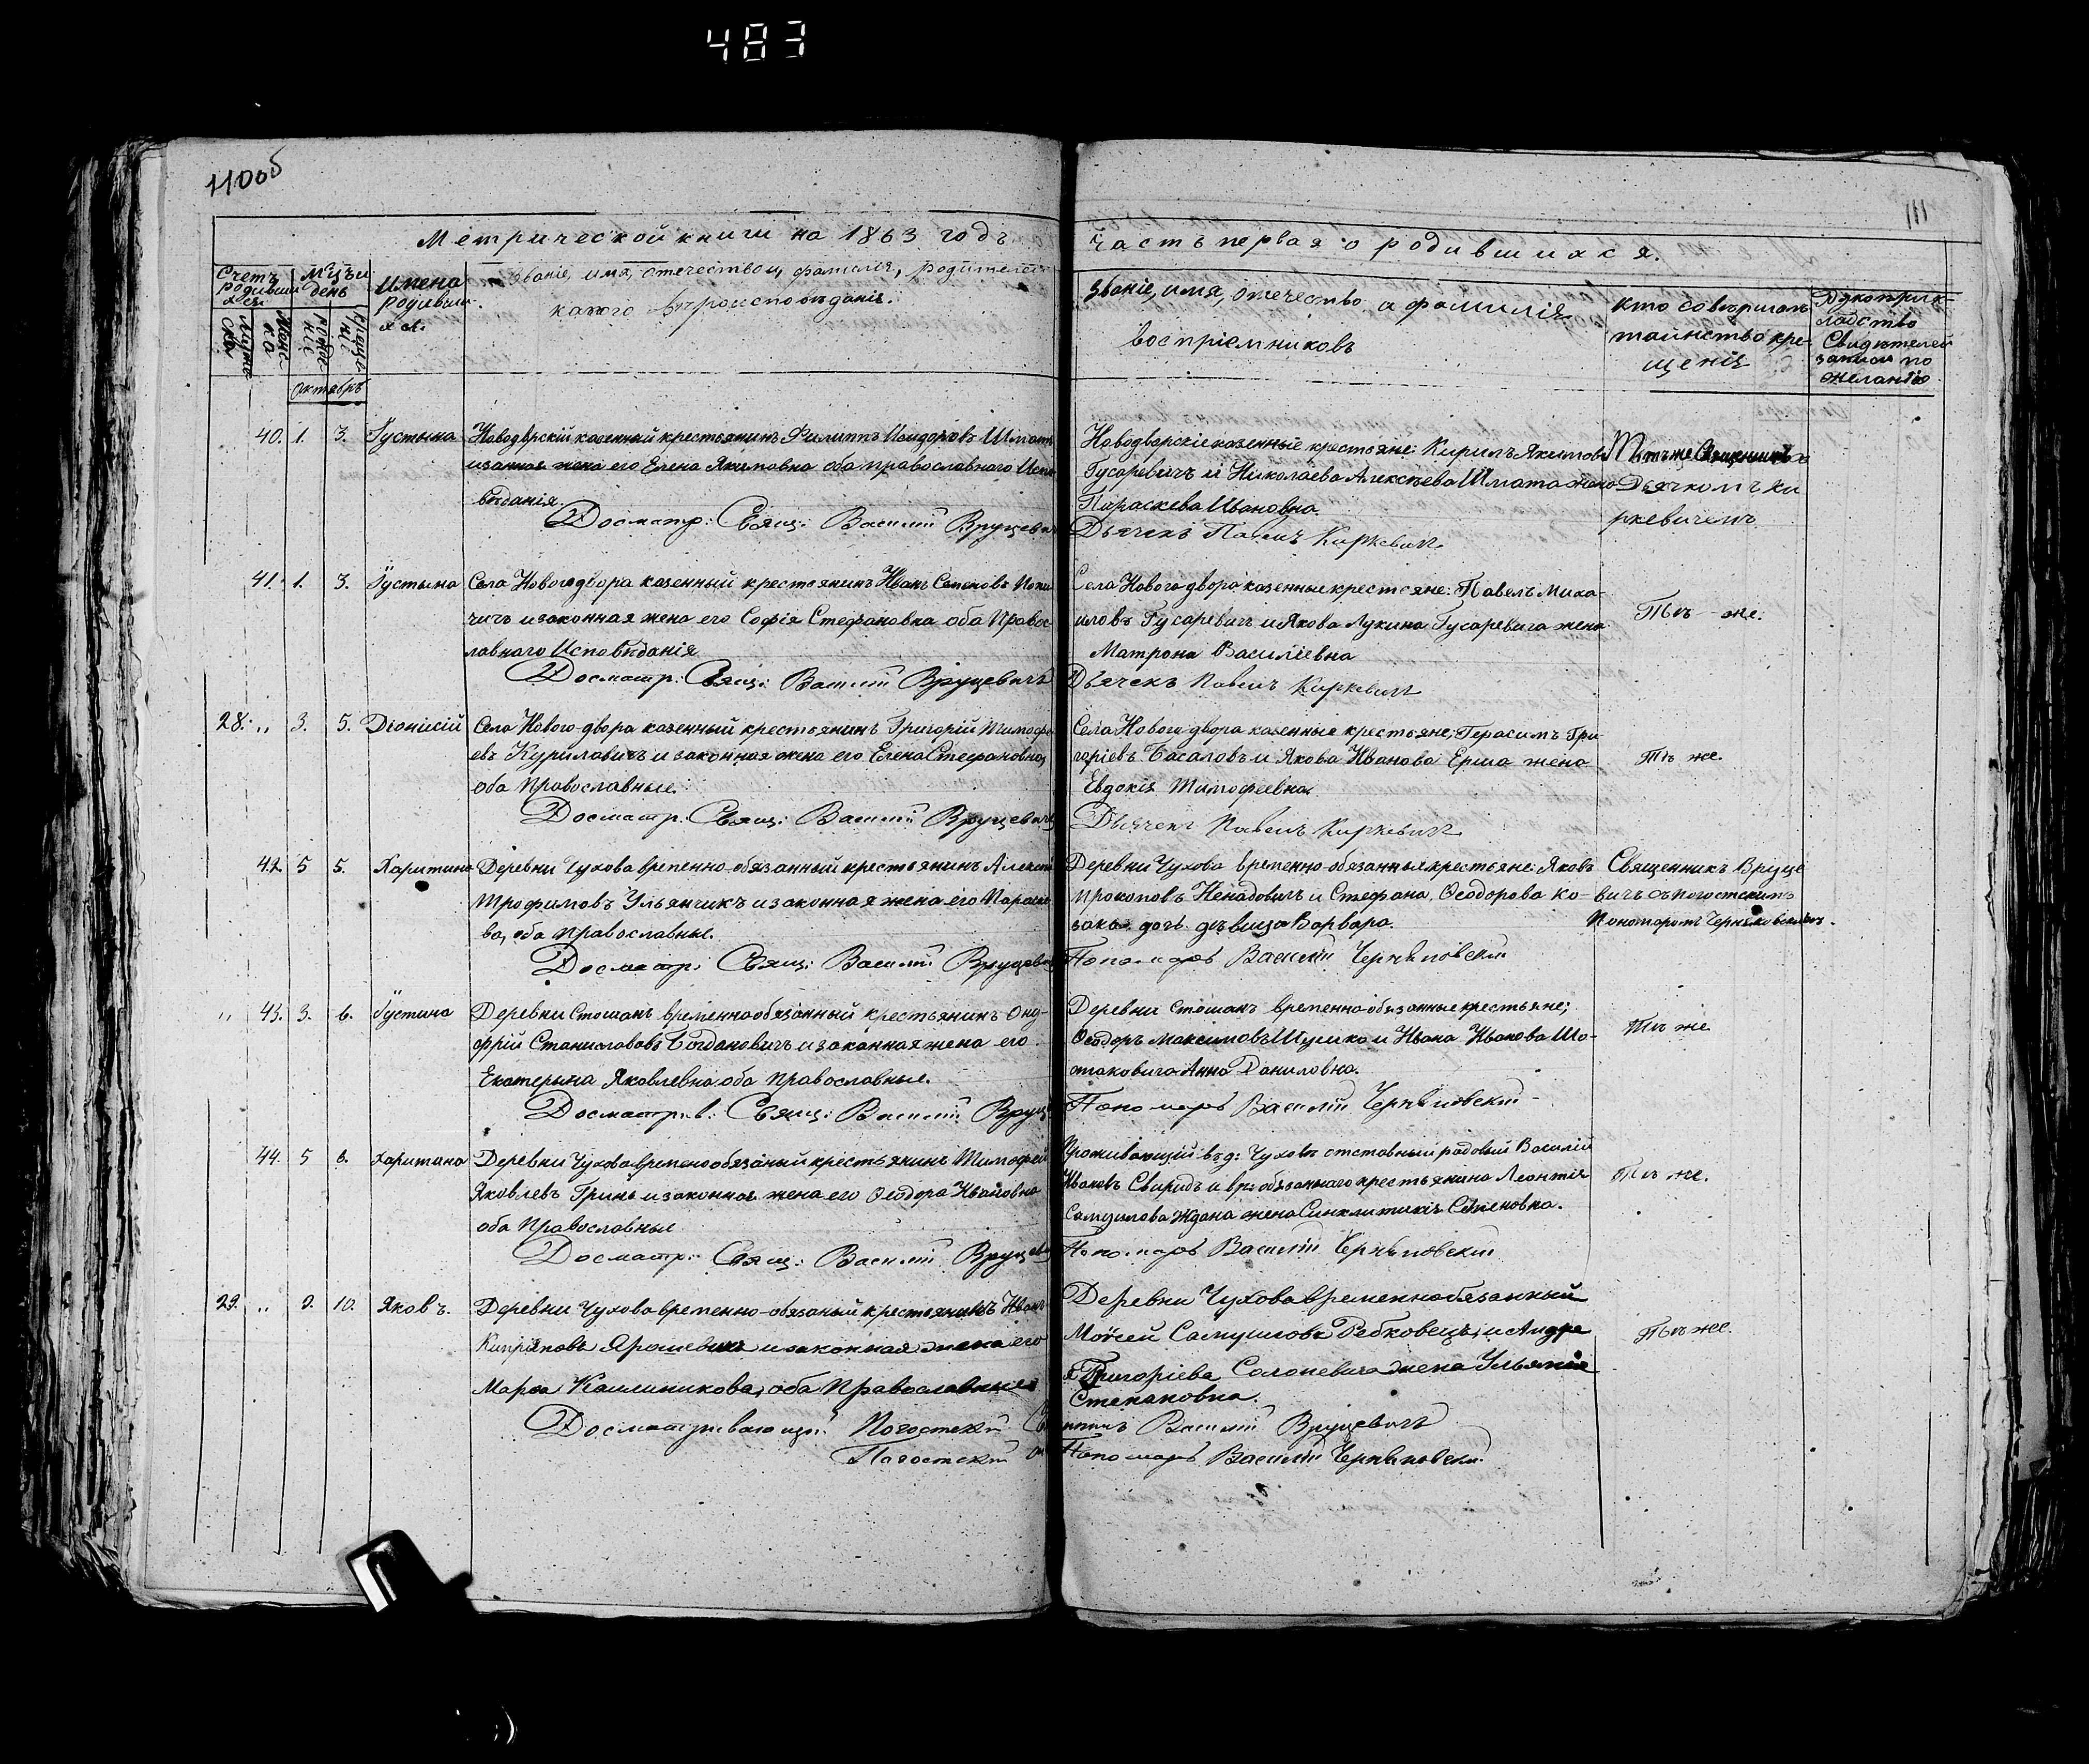 483
110об
111
Метрической книги на 1863 годъ
часть первая о родившихся.
Счетъ родивших ся.
Мцъ и день
Имена родивши хся.
Званіе, имя, отечество и фамилія, родителей
какого вѣроисповѣданія.
Званіе, имя, отечество и фамилія
воспріемниковъ
кто совершалъ
таинство кре-
щенія
Рукоприк-
ладство
Свидѣтелей
записи по
желанію
Октябрь
40. 1. 3. Іустына
Новодврскій казенный крестьянинъ Филиппъ Исидоровъ Шмат
и занная жена его Елена Якимовна оба православнаго Испо
вѣданія.
Досматр: Свящ: Василій Вруцевич
Новодворскіе казенные крестьяне: Кирилъ Якимовъ
Гусаревичъ и Николаева Алексѣева Шмата жена
Параскева Ивановна.
Дьячекъ Павелъ Киркевичъ.
Тотъ же Священникъ съ
Дьячкомъ Ки
ркевичемъ
41. 1. 3. Іустына
Села Новогодвора казенный крестьянинъ Иванъ Семеновъ Попи
чичъ и законная жена его Софія Стефановна оба Правос
лавнаго Исповѣданія
Досматр: Свящ: Василій Вруцевичъ
Села Новогодвора казенные крестьяне: Павелъ Миха-
иловъ Гусаревичъ и Якова Лукина Гусаревича жена
Матрона Василіевна
Дьячекъ Павелъ Киркевичъ
Тѣ-же.
28. „ 3. 5. Діонисій
Села Новогодвора казенный крестьянинъ Григорій Тимофе
евъ Куриловичъ и законная жена его Елена Стефановна,
оба Православные.
Досматр. Свящ: Василій Вруцевичъ
Села Новогодвора казенные крестьяне: Герасимъ Гри
горіевъ Басаловъ и Якова Иванова Ерша жена
Евдокія Тимофеевна.
Дьячекъ Павелъ Киркевичъ
Тѣ же.
42 5 5. Харитина
Деревни Чухова временно-обязанный крестьянинъ Алексѣй
Трофимовъ Ульянчикъ и законная жена его Параске
ва, оба православные.
Досматр: Свящ: Василій Вруцеви
Деревни Чухова временно-обязанные крестьяне: Яковъ
Прокоповъ Ненадовичъ и Стефана Ѳеодорова Ко-
зака дочь дѣвица Варвара.
Пономарь Василій Чернѣловскій
Священникъ Вруце
вичъ съ Погостскимъ
Пономаремъ Чернѣловскимъ.
„ 43. 3. 6. Іустина
Деревни Стошанъ временнообязанный крестьянинъ Ону-
фрій Станиславовъ Богдановичъ и законная жена его
Екатерына Яковлевна оба православные.
Досматр. Свящ: Василій Вруц
Деревни Стошанъ временнообязанные крестьяне;
Ѳеодоръ Максимовъ Шушко и Ивана Иванова Шо-
таковича Анна Даниловна.
Пономарь Василій Чернѣловскій
Тѣ же
44. 5 6. Харитина
Деревни Чухова временообязаный крестьянинъ Тимофей
Яковлевъ Гринь и законная жена его Ѳеодора Ивановна
оба Православные
Досматр: Свящ: Василій Вруцеви
Проживающій въ д: Чуховѣ отставный рядовый Василій
Ивановъ Свиридъ и вр: обязаннаго крестьянина Леонтія
Самуилова Ждана жена Синклитикія Семеновна.
Пономарь Василій Чернѣловскій
Тѣ же.
29. „ 9. 10. Яковъ.
Деревни Чухова временно-обязаный крестьянинъ Иванъ
Кипріяновъ Ярошевичъ и законная жена его
Марѳа Калиникова, оба Православные
Досматривающій Погостскій Священникъ Василій Вруцевичъ
Погостскій Пономарь Василій Чернѣловскій
Деревни Чухова временнообязанный
Моѵсей Самуиловъ Ребковецъ и Андре
я Григоріева Солоневича жена Ульянія
Степановна.
Тѣ же.